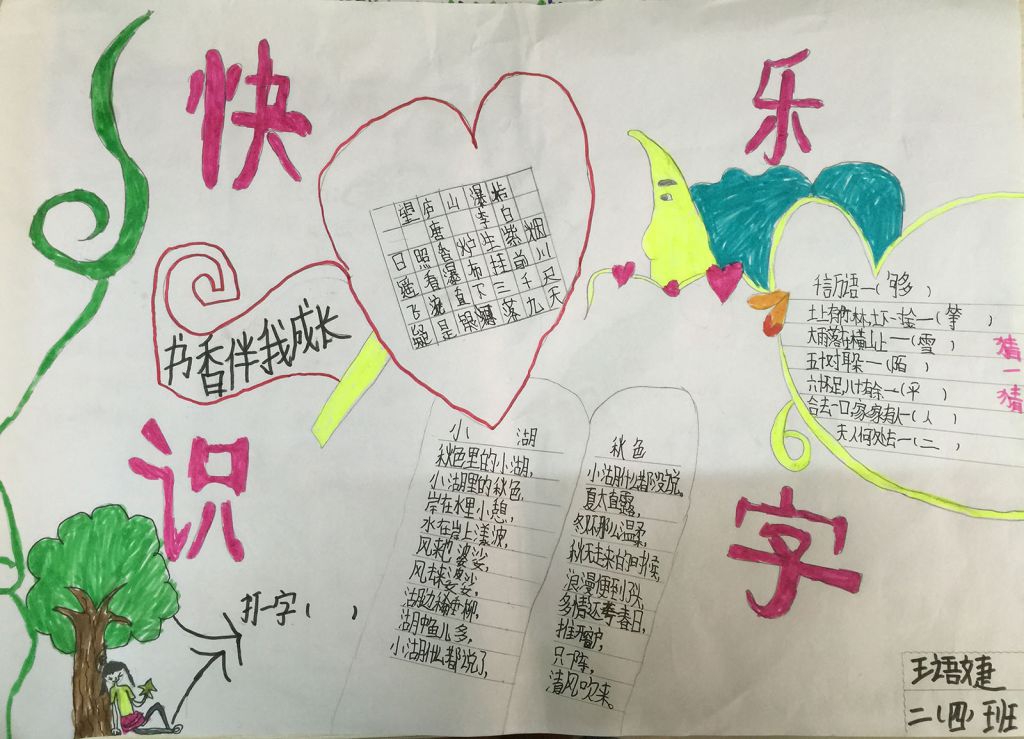 快 乐
望庐山瀑
唐 李白
日照香炉生紫烟
遥看瀑布挂前川
飞流直下三千尺
是 落九天
书香伴我成长
千言万语一(够 )
土上有竹林,土下一寸金一( )
大雨落在横山上一(雪 )
五十对耳朵一(陌 )
六十不足,八十有余一(平 )
合去一口,家家有人一(人 )
夫人何处去一(二 )
猜一猜
识 字
小 湖
秋色里的小湖,
小湖里的秋色,
岸在水里小憩,
水在岸上漾波,
风来也婆娑,
风去婆娑,
湖边垂柳,
湖中鱼儿多,
小湖什么都说了,
秋色
小湖什么都没说。
夏太直露,
冬不那么温柔,
秋天走来的时候,
浪漫便到头,
多情还等春日,
推开窗户,
只一阵,
清风吹来。
打一字( )
王语婕
二(四)班